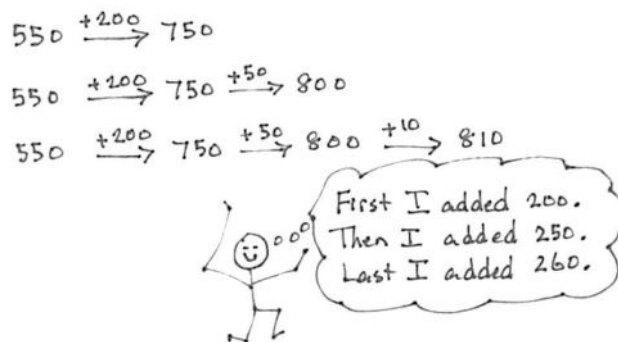 550 +200→ 750
550 +200→ 750 +50→ 800
550 +200→ 750 +50→ 800 +10→ 810
First I added 200.
Then I added 250.
Last I added 260.